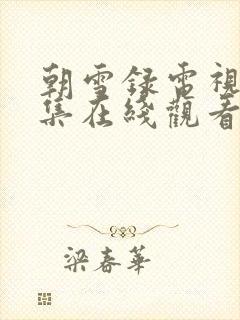 朝雪録電視
集在綫觀看
梁春華